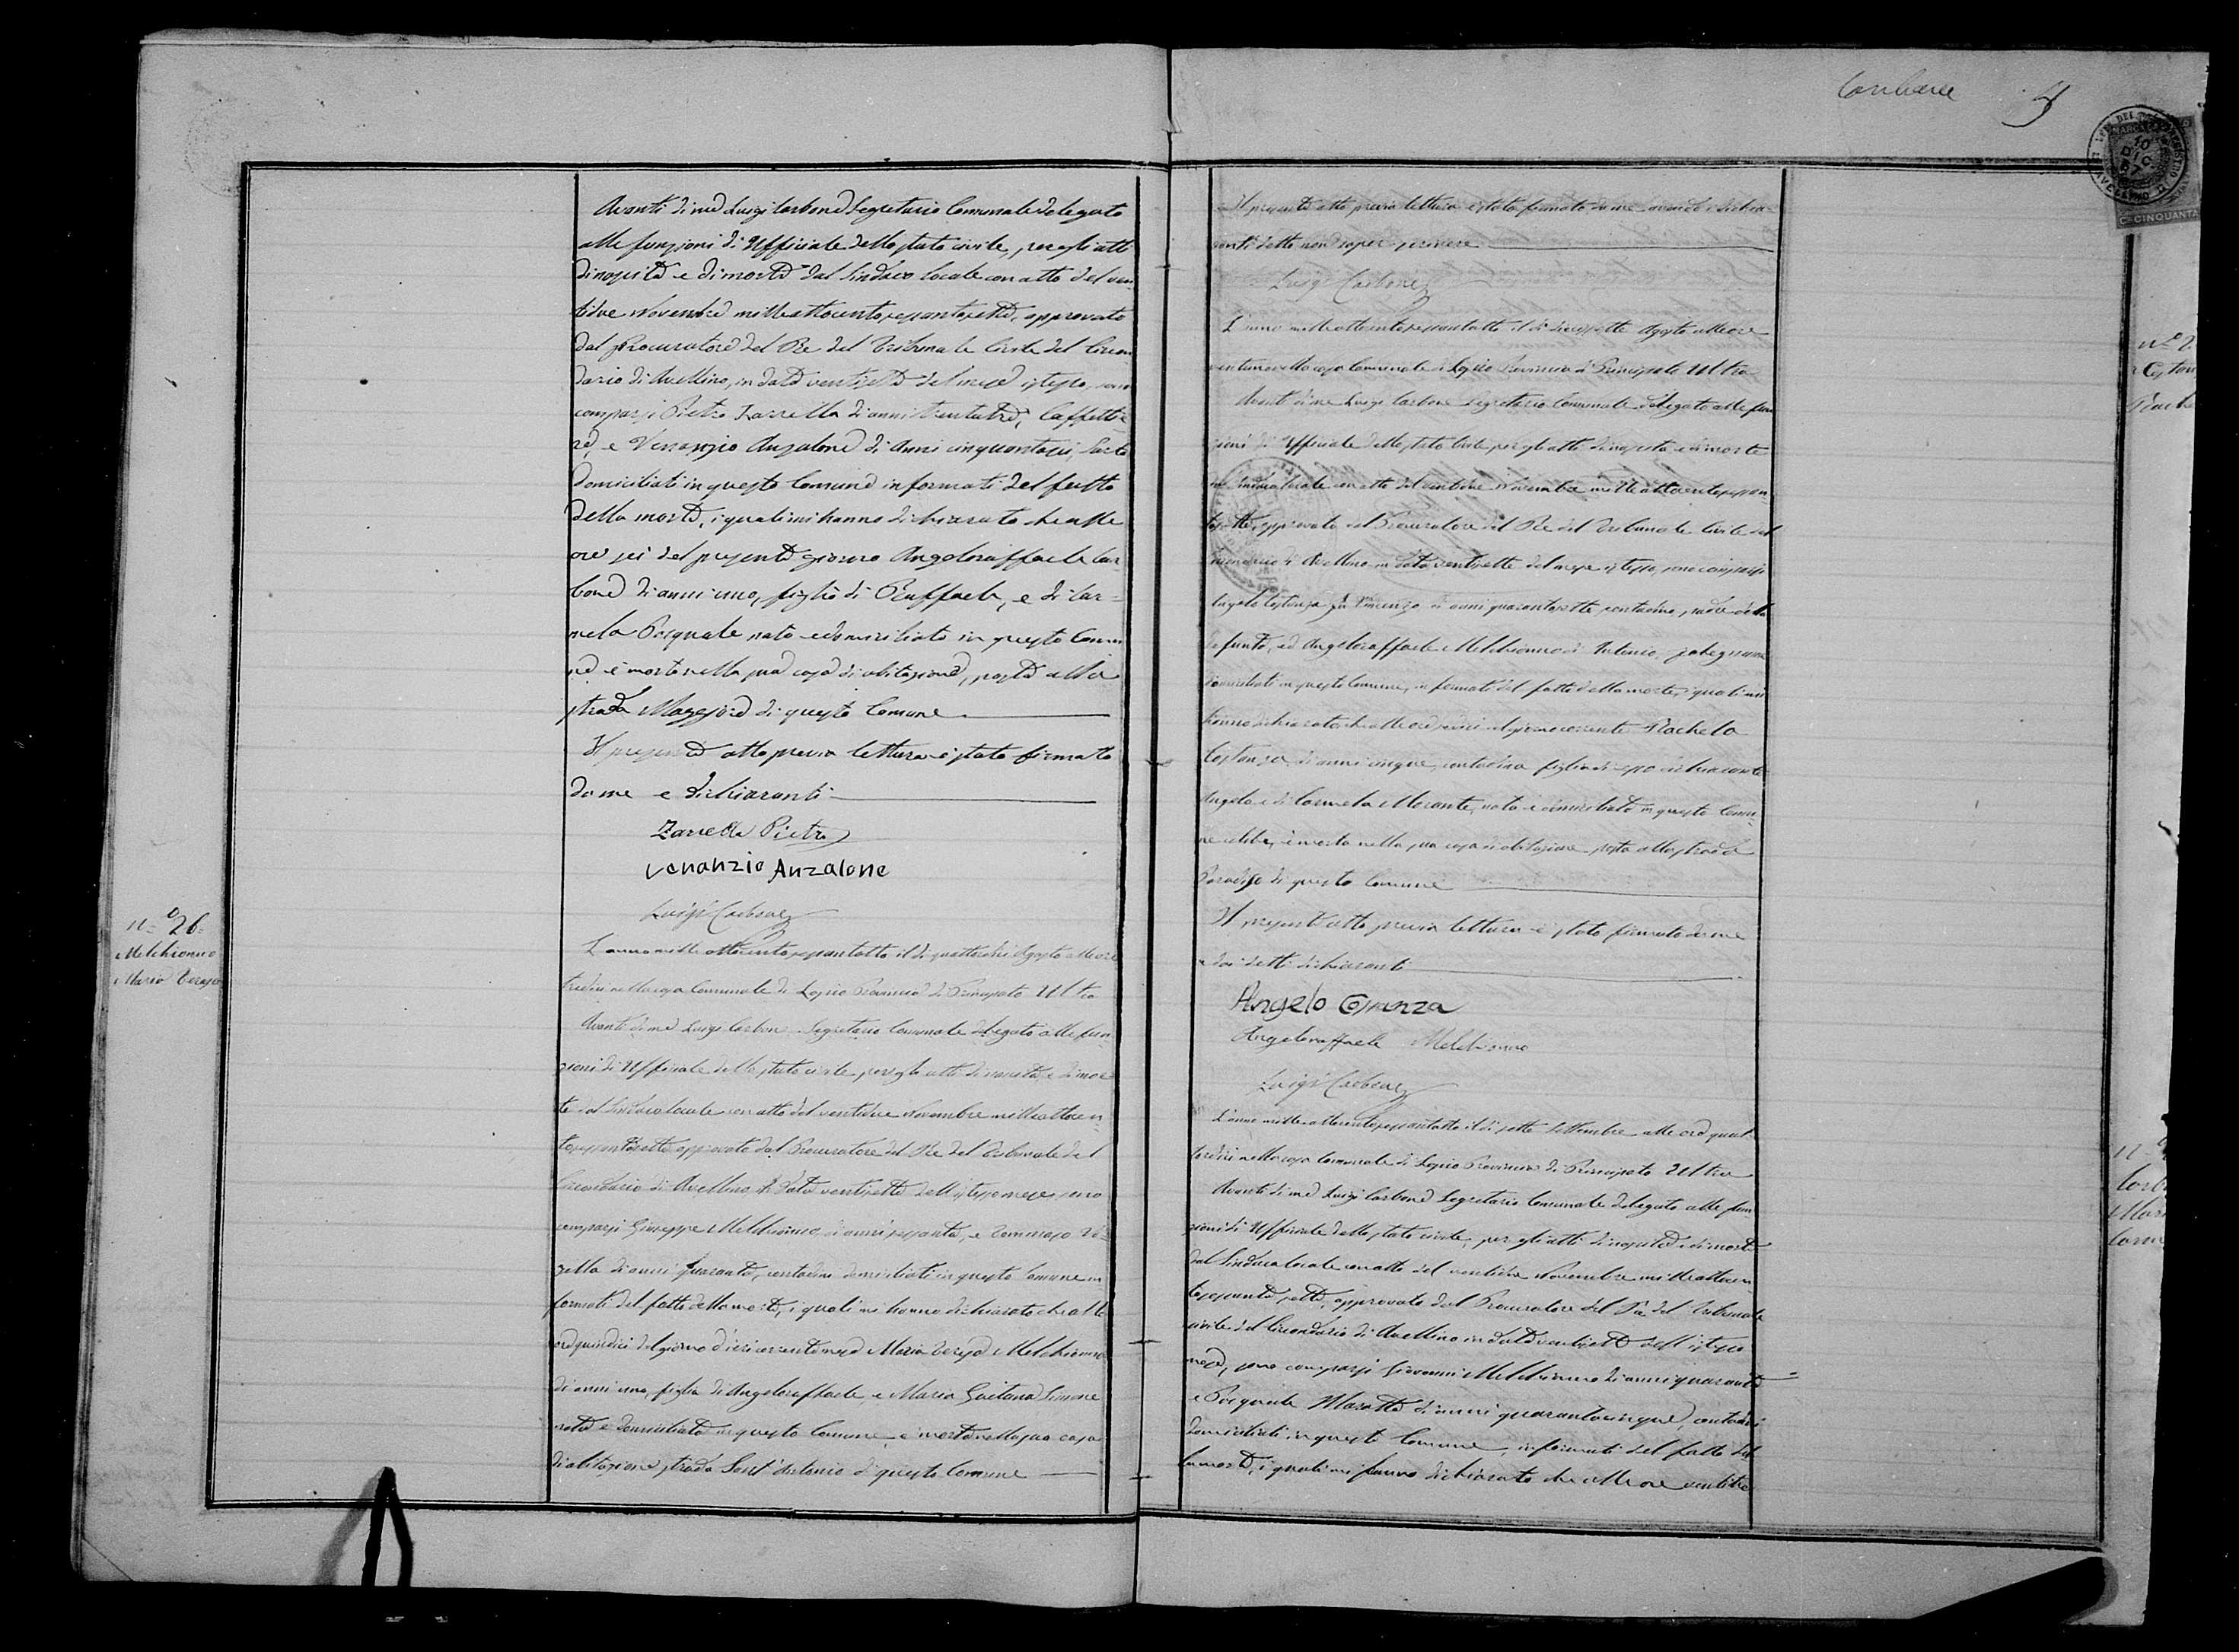 Avanti di me Luigi Carbone Segretario Comunale delegato
alle funzioni di Uffiziale dello stato civile, per gli atti
di nascita e di morte dal Sindaco locale con atto del ven-
tidue Novembre milleottocentosessantasette, approvato
dal Procuratore del Re del Tribunale Civile del Circon
dario di Avellino, in data ventisette del mese istesso, sono
comparsi Pietro Zarrella di anni trentatre, Caffettie-
re, e Venanzio Anzalone di anni cinquantasei, Sarto
domiciliati in questo Comune informati del fatto
della morte, i quali mi hanno dichiarato che alle
ore sei del presente giorno Angeloraffaele Car-
bone di anni uno, figlio di Raffaele, e di Car-
mela Pasquale nato e domiciliato in questo Comu
ne è morto nella sua casa di abitazione, posta alla
strada Maggiore di questo Comune
Il presente atto previa lettura è stato firmato
da me e dichiaranti
Zarrella Pietro
Venanzio Anzalone
Luigi Carbone
N.º 26
Melchionno
Maria Teresa
L'anno milleottocentosessantotto il dì quattordici Agosto alle ore
tredici nella casa Comunale di Lapio Provincia di Principato Ultra
Avanti di me Luigi Carbone Segretario Comunale delegato alle fun-
zioni di Uffiziale dello stato civile per gli atti di nascita, e di mor
te dal Sindaco locale con atto del ventidue Novembre milleottocen-
tosessantasette approvato dal Procuratore del Re del Tribunale del
Circondario di Avellino in data ventisette dell'istesso mese, sono
comparsi Giuseppe Melchionno di anni sessanta, e Tommaso
di anni quaranta, contadini domiciliati in questo Comune in
formati del fatto della morte, i quali mi hanno dichiarato che alle
ore quindici del giorno d'ieri corrente mese Maria Teresa Melchionno
di anni uno, figlia di Angeloraffaele, e Maria Gaetana Simone
nata e domiciliata in questo Comune, è morta nella sua casa
di abitazione strada Sant'Antonio di questo Comune
Carbone
Il presente atto previa lettura è stato firmato da me avendo i dichia-
ranti detto non saper scrivere
Luigi Carbone
L'anno milleottocentosessantotto il dì diciassette Agosto alle ore
ventuno nella casa Comunale di Lapio Provincia di Principato Ultra
Avanti di me Luigi Carbone Segretario Comunale delegato alle fun
zioni di Uffiziale dello stato Civile per gli atti di nascita e di morte
dal Sindaco locale con atto del ventidue Novembre milleottocentosessan
tasette, approvato dal Procuratore del Re del Tribunale Civile del
Circondario di Avellino in data ventisette del mese istesso, sono comparsi
Angelo Costanza fu Vincenzo di anni quarantasette contadino, padre della
defunta, ed Angeloraffaele Melchionno di Antonio, falegname
domiciliati in questo Comune, informati del fatto della morte, i quali mi
hanno dichiarato che alle ore sedici del giorno corrente Rachela
Costanza, di anni cinque, contadina figlia di esso dichiarante
Angelo e di Carmela Morante, nata e domiciliata in questo Comu-
ne celibe, è morta nella sua casa di abitazione posta alla strada
Paradiso di questo Comune
Il presente atto previa lettura è stato firmato da me
e dai detti dichiaranti
Angelo Costanza
Angeloraffaele Melchionno
Luigi Carbone
L'anno milleottocentosessantotto il dì sette Settembre alle ore quat-
tordici nella casa Comunale di Lapio Provincia di Principato Ultra
Avanti di me Luigi Carbone Segretario Comunale delegato alle fun
zioni di Uffiziale dello stato civile, per gli atti di nascita e di morte
dal Sindaco locale con atto del ventidue Novembre milleottocen
tosessantasette, approvato dal Procuratore del Re del Tribunale
civile del Circondario di Avellino in data ventisette dell'istesso
mese, sono comparsi Giovanni Melchionno di anni quaranta
e Pasquale Moratto di anni quarantacinque, contadini
domiciliati in questo Comune, informati del fatto del
la morte, i quali mi hanno dichiarato che alle ore ventitre
C.mi CINQUANTA